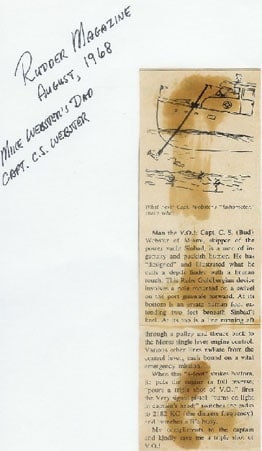 RUDDER MAGAZINE
AUGUST, 1968
MIKE WEBSTER'S DAD
CAPT. C.S. WEBSTER
Man the V.O.! Capt. C. S. (Bud)
Webster of Miami, skipper of the
power yacht Sinbad, is a man of in-
genuity and puckish humor. He has
"designed" and illustrated what he
calls a depth finder with a human
touch. This Rube Goldbergian device
involves a pole mounted on a swivel
on the port gunwale forward. At its
bottom is an ornate human foot ex-
tending two feet beneath Sinbad's
keel. At its top is a line running aft
through a pulley and thence back to
the Morse single lever engine control.
Various other lines radiate from the
control, each bound on a vital
emergency mission.
When this strikes bottom,
it: puts the engine in full reverse;
"pours a triple shot of V.O."; fires
the Very pistol; turns on light
in captain's head; switches the radio
to 2182 KC (the distress frequency)
and
My compliments to the captain
and kindly give me a triple shot of
V.O.!